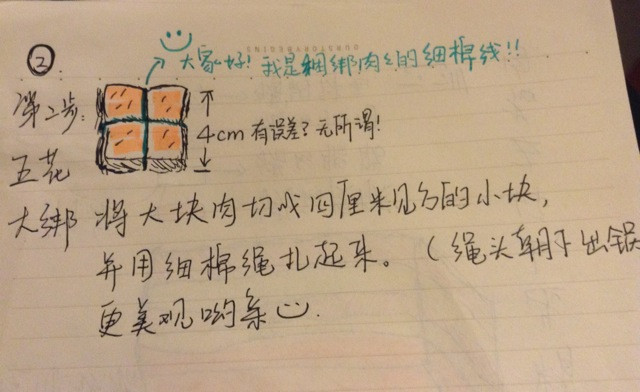 ②
大家好！我是捆绑肉纟的细棉线!!
第二步：
4cm 有误差？无所谓！
五花
大绑 将大块肉切成四厘米见方的小块，
并用细棉绳扎起来。（绳头朝下出锅
更美观哟亲